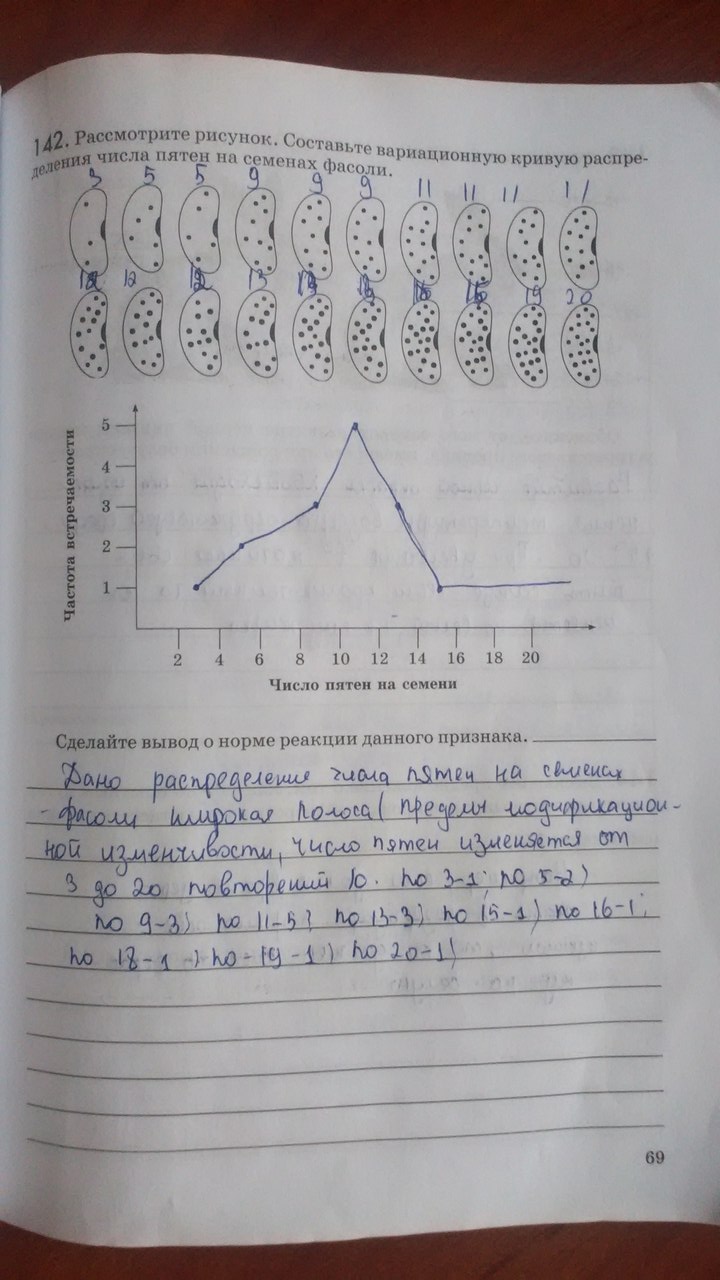 142. Рассмотрите рисунок. Составьте вариационную кривую распре-
деления числа пятен на семенах фасоли.
3 5 5 9 9 9 11 11 11 11
12 12 13 19 20
Частота встречаемости
5
4
3
2
1
2 4 6 8 10 12 14 16 18 20
Число пятен на семени
Сделайте вывод о норме реакции данного признака.
Дано распределение числа пятен на семенах
фасоли широкая полоса( пределы модификацион-
ной изменчивости, число пятен изменяется от
3 до 20 повторений 10. по 3-1; по 5-2)
по 9-3) по 11-5; по 13-3) по 15-1) по 16-1;
по 18-1 ) по-19-1) по 20-1)
69